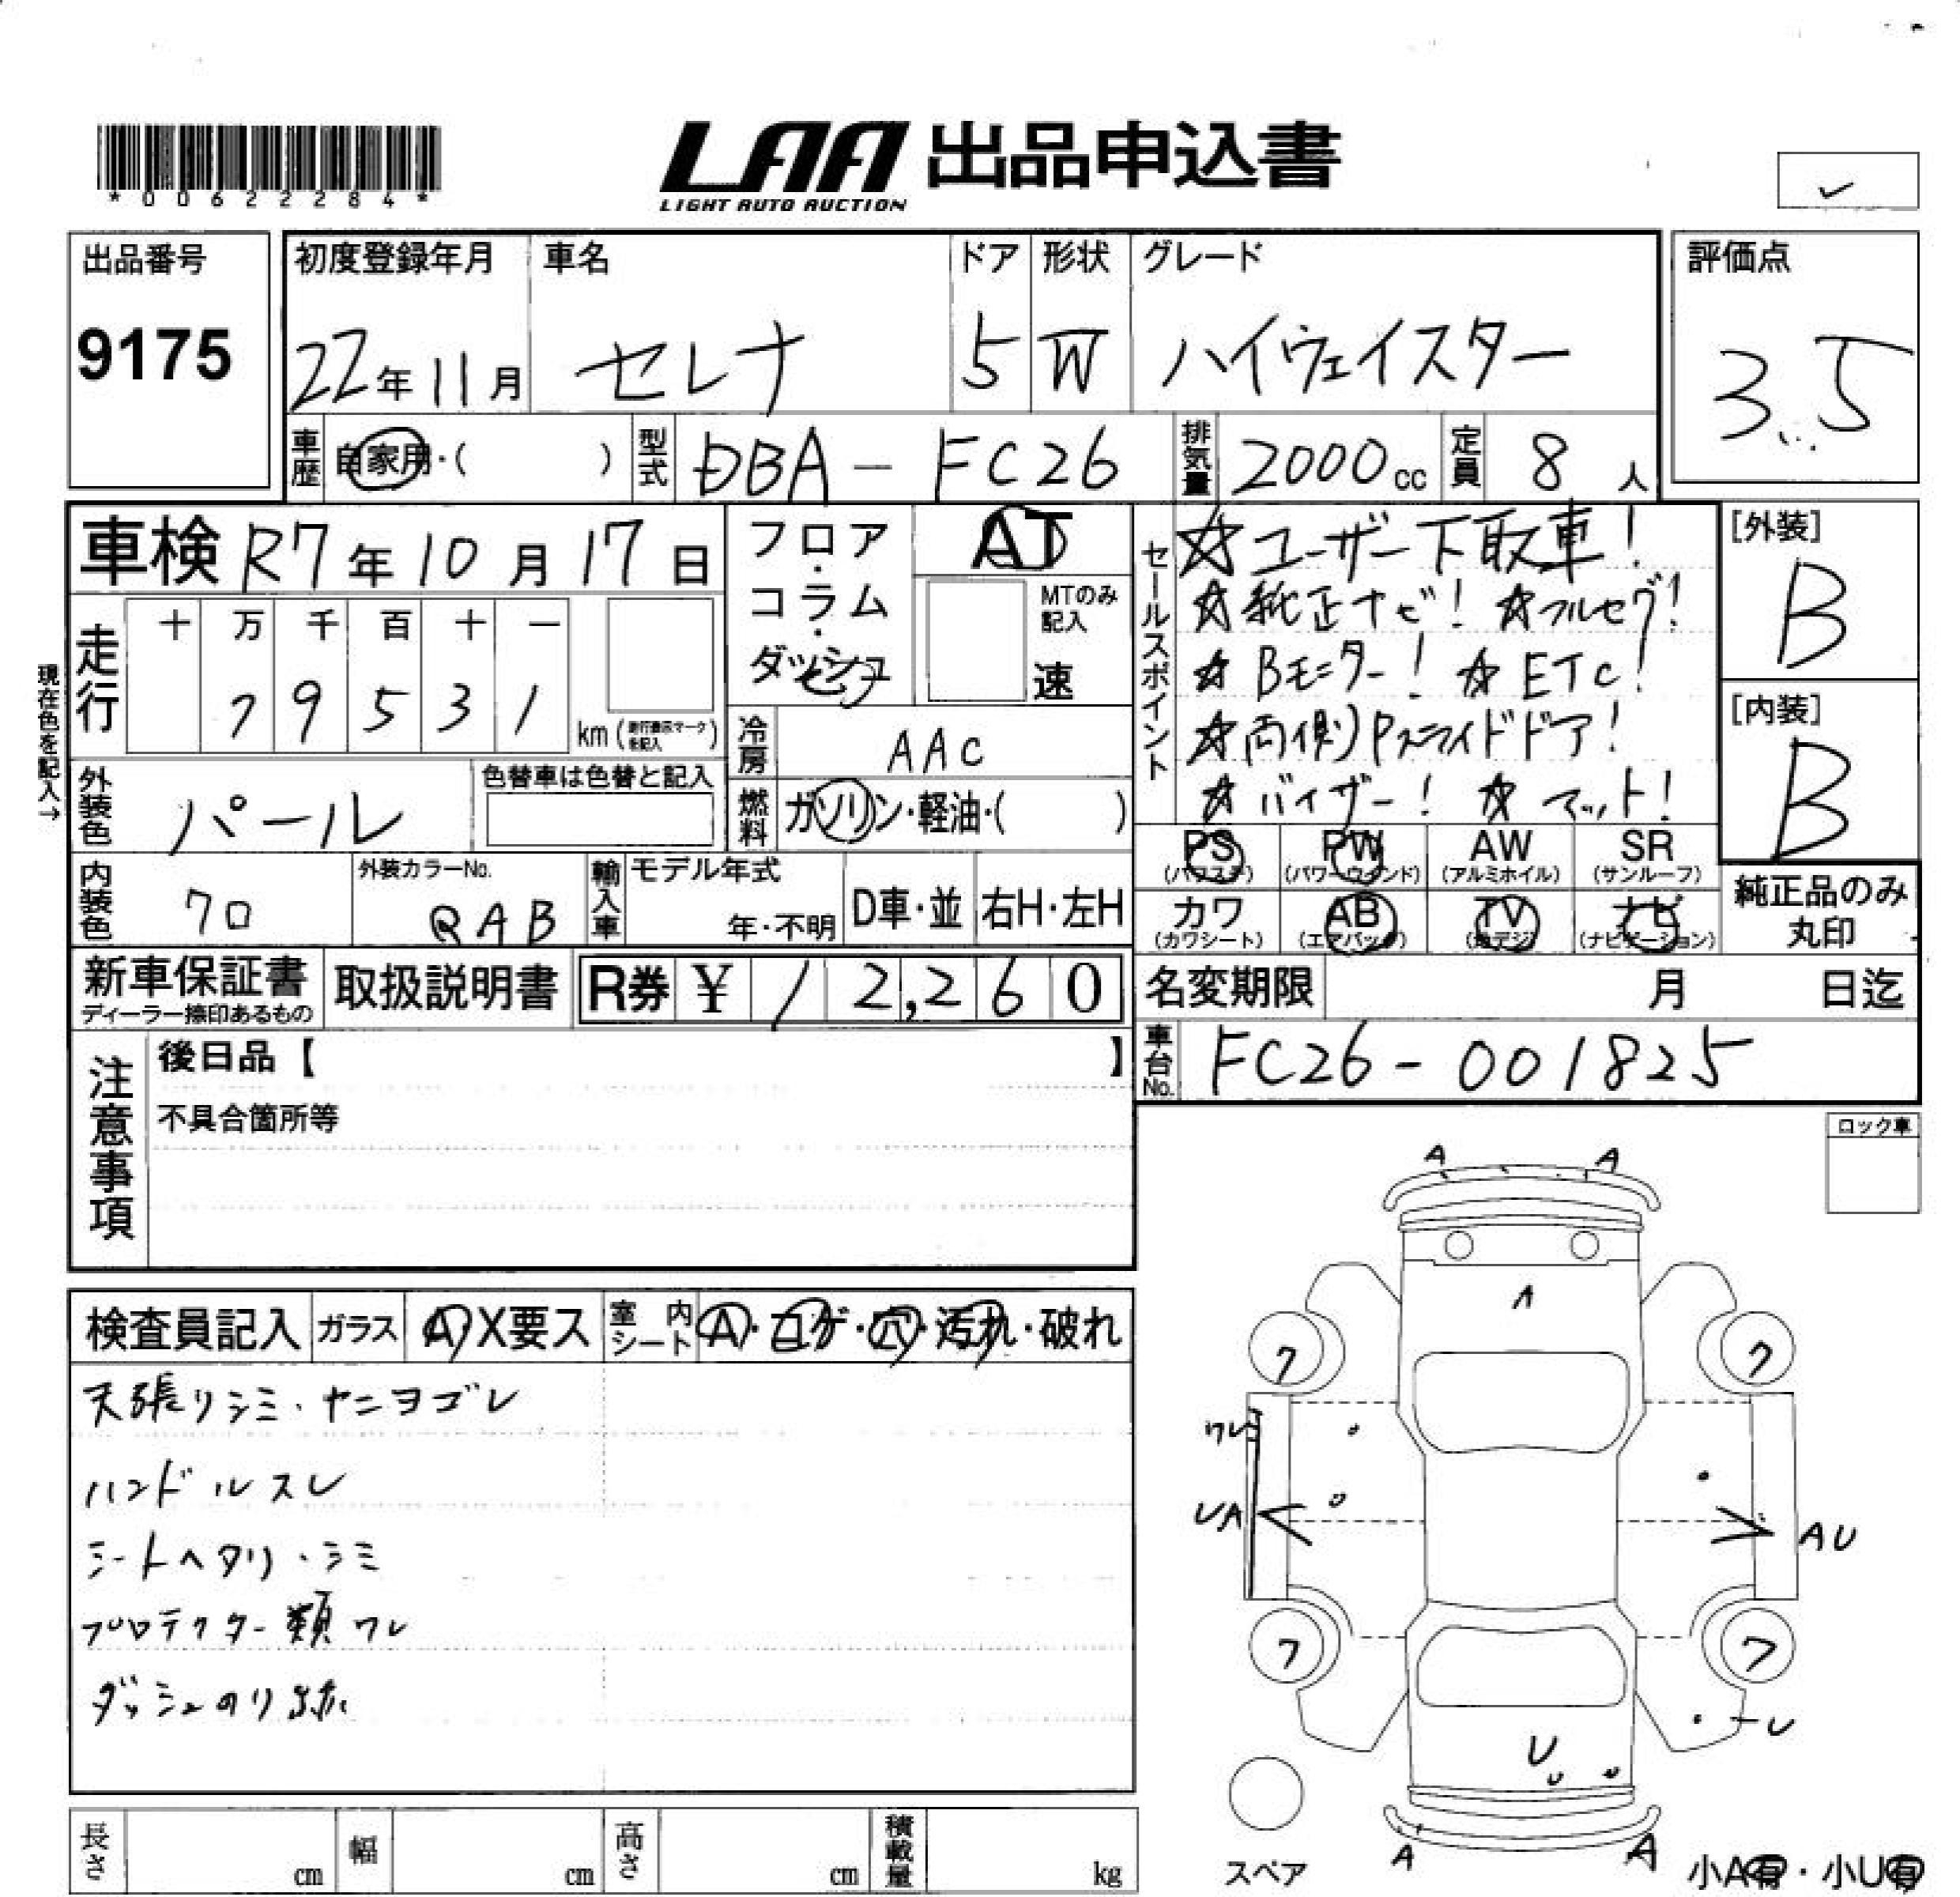 *00622284*
LAA 出品申込書
LIGHT AUTO AUCTION
出品番号
9175
初度登録年月
22年11月
車名
セレナ
ドア
5
形状
W
グレード
ハイウェイスター
評価点
3.5
車歴
自家用・( )
型式
DBA-FC26
排気量
2000cc
定員
8人
車検 R7年10月17日
フロア・コラム・ダッシュ
AT
MTのみ記入
速
セールスポイント
☆ユーザー下取車!
☆純正ナビ! ☆フルセグ!
☆Bモニター! ☆ETC!
☆両側Pスライドドア!
☆バイザー! ☆マット!
[外装]
B
[内装]
B
現在色を記入→
走行
十 万 千 百 十 一
7 9 5 3 1
km
冷房
AAC
燃料
ガソリン・軽油・( )
外装色
パール
色替車は色替と記入
内装色
外装カラーNo.
QAB
輸入車
モデル年式
年・不明
D車・並
右H・左H
PS
(パワステ)
PW
(パワーウインド)
AW
(アルミホイル)
SR
(サンルーフ)
カワ
(カワシート)
AB
(エアバック)
TV
(地デジ)
ナビ
(ナビゲーション)
純正品のみ
丸印
新車保証書
ディーラー捺印あるもの
取扱説明書
R券 ¥12,260
名変期限
月 日迄
車台No.
FC26-001825
注意事項
後日品【 】
不具合箇所等
ロック車
検査員記入
ガラス
A・X要ス
室内シート
A・コゲ・穴・汚れ・破れ
天張りシミ・ヤニヨゴレ
ハンドルスレ
シートヘタリ・シミ
プロテクター類ワレ
ダッシュのり跡
A A
A
7 7
ワレ
UA
AU
7 7
U
A A
スペア
小A有・小U有
長さ cm
幅 cm
高さ cm
積載量 kg